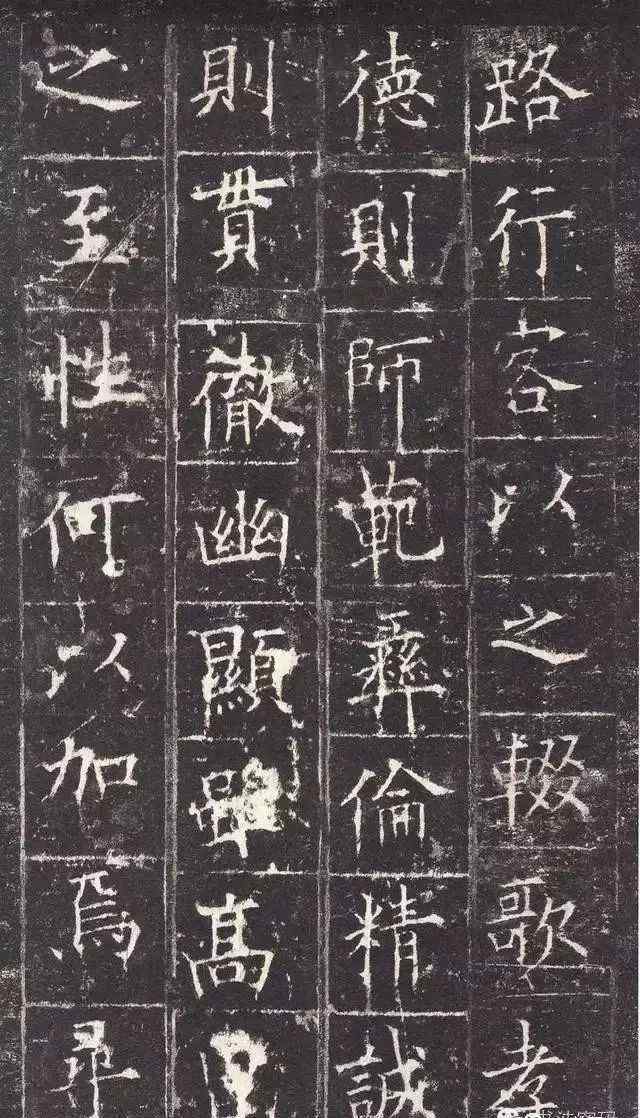 路行容以之輟歌孝
德則師範彝倫精誠
則貫徹幽顯雖高
之至性何以加焉尋